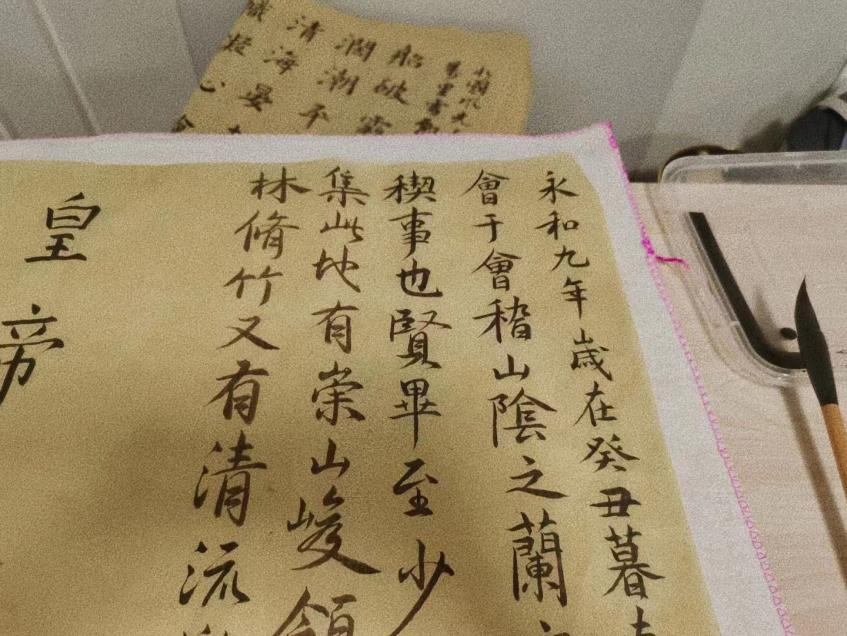 永和九年歲在癸丑暮
會于會稽山陰之蘭
稧事也賢畢至少
集此地有崇山峻領
林脩竹又有清流
皇
船破
潤潮平
清海晏